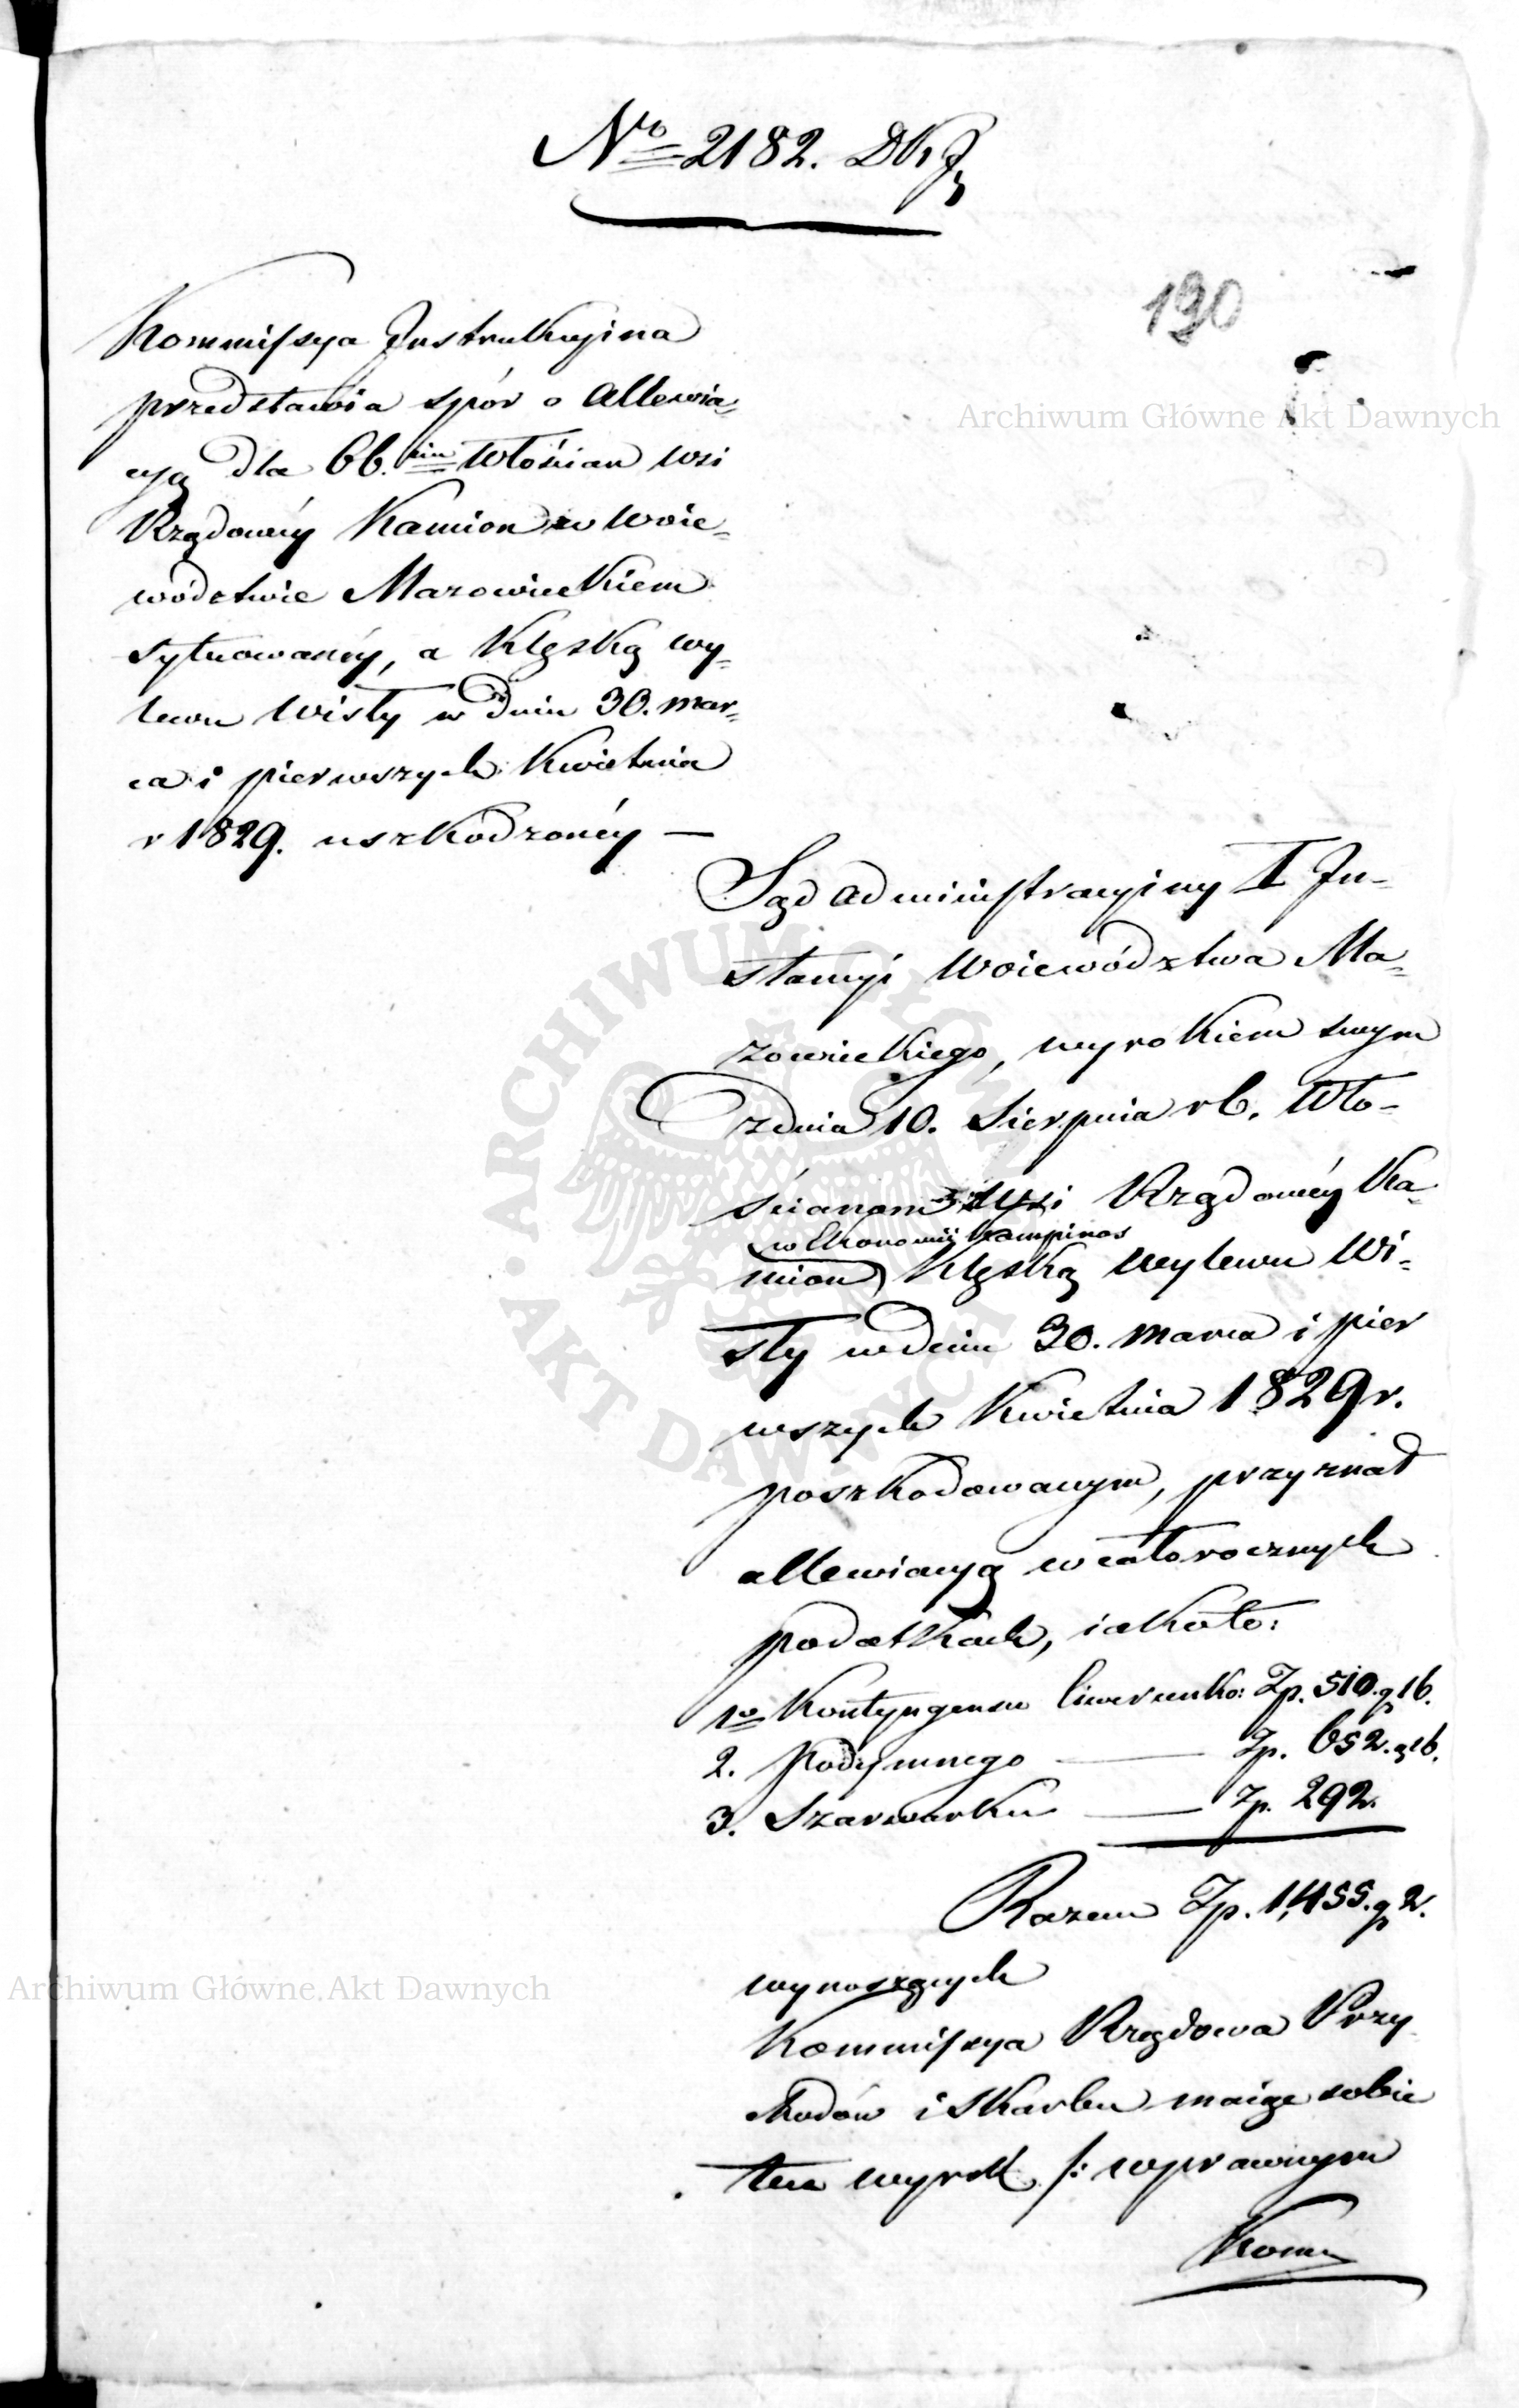 No 2182. DKJ
190
Kommissya Instrukcyina
przedstawia spór o allewia-
cyą dla 66.ciu Włościan wsi
Rządowéy Kamion w Woie-
wództwie Mazowieckiem
sytuowanéy, a klęską wy-
lewu Wisły w dniu 30. mar-
ca i pierwszych Kwietnia
r 1829. uszkodzonéy —
Sąd administracyiny I In-
stancyi Woiewództwa Ma-
zowieckiego, wyrokiem swym
z dnia 10. Sierpnia r b. Wło-
ścianom wsi Rządowéy Ka-
w Ekonomii Kampinos
mion klęską wylewu Wi-
sły w dniu 30. marca i pier
wszych Kwietnia 1829 r.
poszkodowanym, przyznał
allewiacyą w całorocznych
podatkach, iakoto:
1o Kontyngensu liwerunko: Zp. 510. g 16.
2. Podymnego — Zp. 652. g 16.
3. Szarwarku — Zp. 292.
Razem Zp. 1,455. g 2.
wynoszących
Kommissya Rządowa Przy
chodów i Skarbu maiąc sobie
ten wyrok /: w prawnym
Kom
Archiwum Główne Akt Dawnych
Archiwum Główne Akt Dawnych
ARCHIWUM GŁÓWNE AKT DAWNYCH